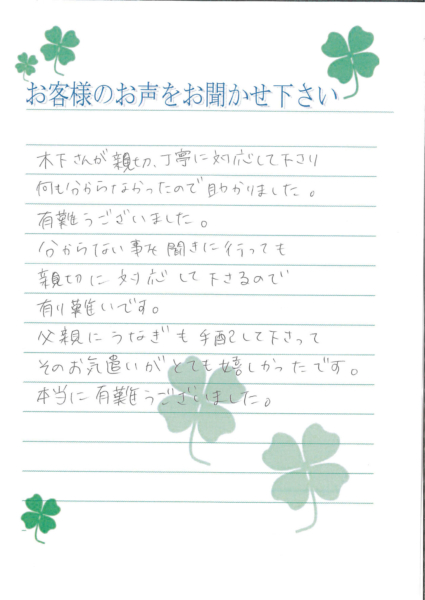 お客様のお声をお聞かせ下さい
木下さんが親切、丁寧に対応して下さり
何も分からなかったので助かりました。
有難うございました。
分からない事を聞きに行っても
親切に対応して下さるので
有り難いです。
父親にうなぎも手配して下さって
そのお気遣いがとても嬉しかったです。
本当に有難うございました。